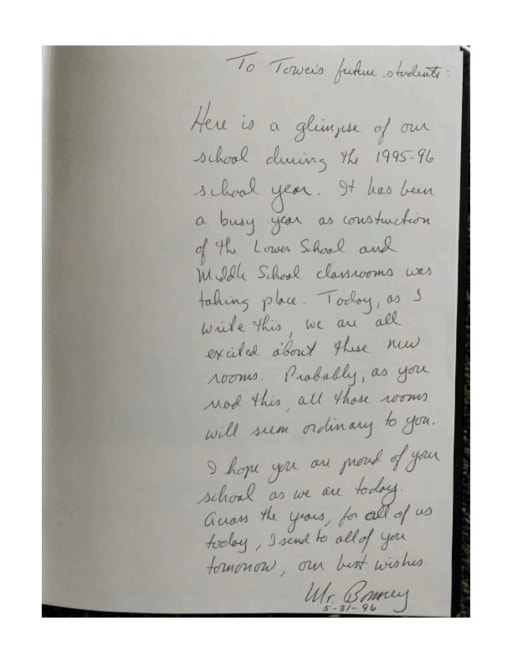 To Tower's future students:
Here is a glimpse of our
school during the 1995-96
school year. It has been
a busy year as construction
of the Lower School and
Middle School classrooms was
taking place. Today, as I
write this, we are all
excited about these new
rooms. Probably, as you
read this, all those rooms
will seem ordinary to you.
I hope you are proud of your
school as we are today.
Across the years, for all of us
today, I send to all of you
tomorrow, our best wishes.
Mr. Bonney
5-31-96